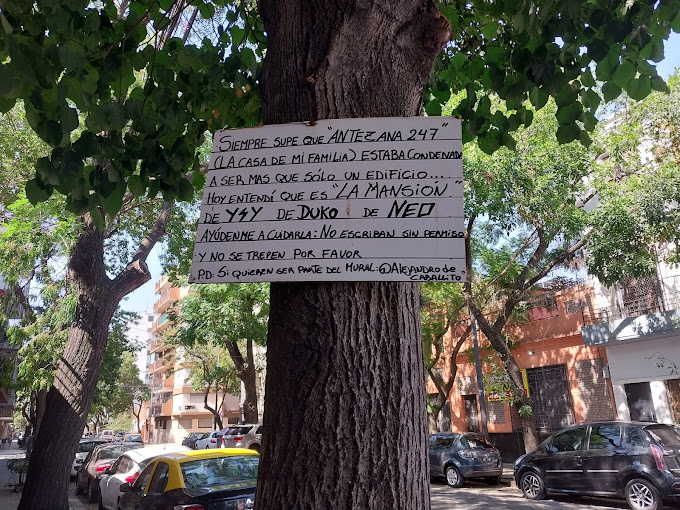 SIEMPRE SUPE QUE "ANTEZANA 247"
(LA CASA DE MI FAMILIA) ESTABA CONDENADA
A SER MAS QUE SÓLO UN EDIFICIO...
HOY ENTENDÍ QUE ES "LA MANSIÓN"
DE YSY DE DUKO DE NEO
AYÚDENME A CUIDARLA: NO ESCRIBAN SIN PERMISO
Y NO SE TREPEN POR FAVOR
PD. SI QUIEREN SER PARTE DEL MURAL: @ALEJANDRO DE
CABALLITO